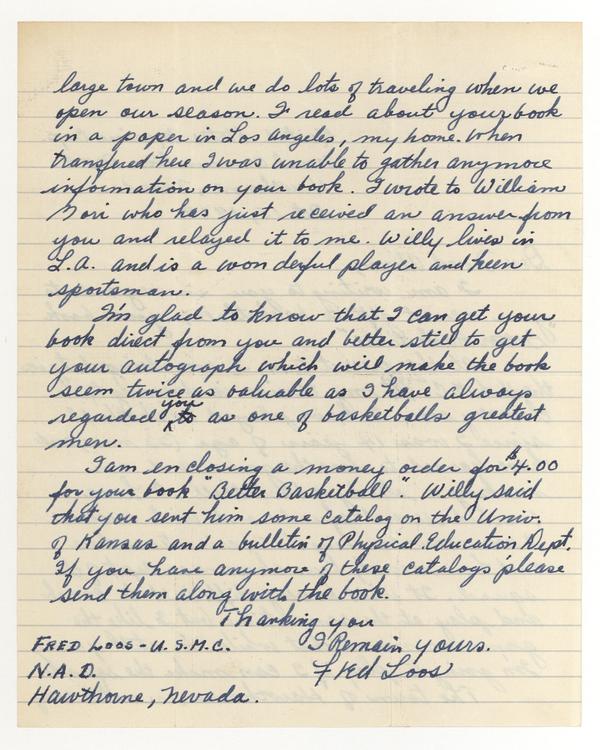 large town and we do lots of traveling when we
open our season. I read about your book
in a paper in Los Angeles, my home. When
transfered here I was unable to gather anymore
information on your book. I wrote to William
Gori who has just received an answer from
you and relayed it to me. Willy lives in
L.A. and is a wonderful player and keen
sportsman.
I'm glad to know that I can get your
book direct from you and better still to get
your autograph which will make the book
seem twice as valuable as I have always
regarded you as one of basketballs greatest
men.
I am enclosing a money order for $4.00
for your book "Better Basketball". Willy said
that you sent him some catalog on the Univ.
of Kansas and a bulletin of Physical Education Dept.
If you have anymore of these catalogs please
send them along with the book.
Thanking you
I Remain yours.
Fred Loos
FRED LOOS - U.S.M.C.
N.A.D.
Hawthorne, Nevada.